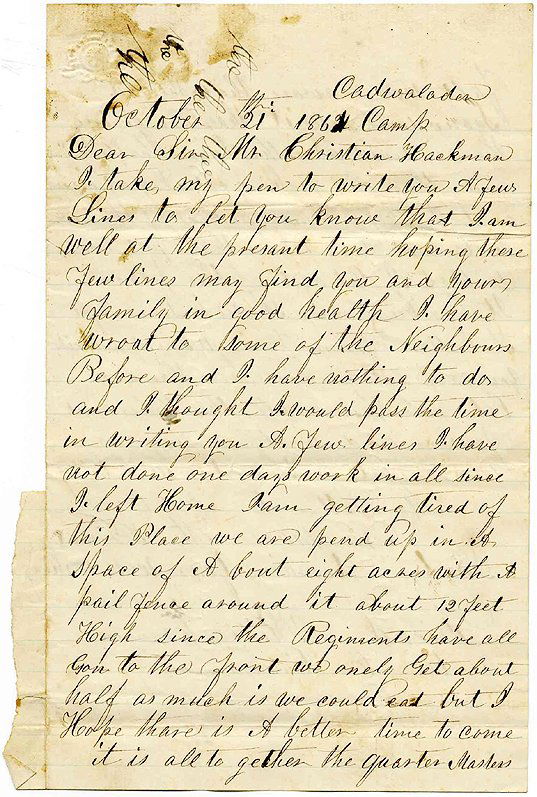 the the the
the the the
Cadwalader
October 21th 1864 Camp
Dear Sir Mr. Christian Hackman
I take my pen to write you A few
Lines to let you know that I am
well at the presant time hoping these
few lines may find you and your
family in good health I have
wroat to some of the Neighbours
Before and I have nothing to do
and I thought I would pass the time
in writing you A few lines I have
not done one days work in all since
I left Home I am getting tired of
this Place we are pend up in A
space of A bout eight acres with A
pail fence around it about 12 feet
High since the Regiments have all
Gon to the front we onely Get about
half as much is we could eat but I
Hope thare is A better time to come
it is all to gether the quarter Masters